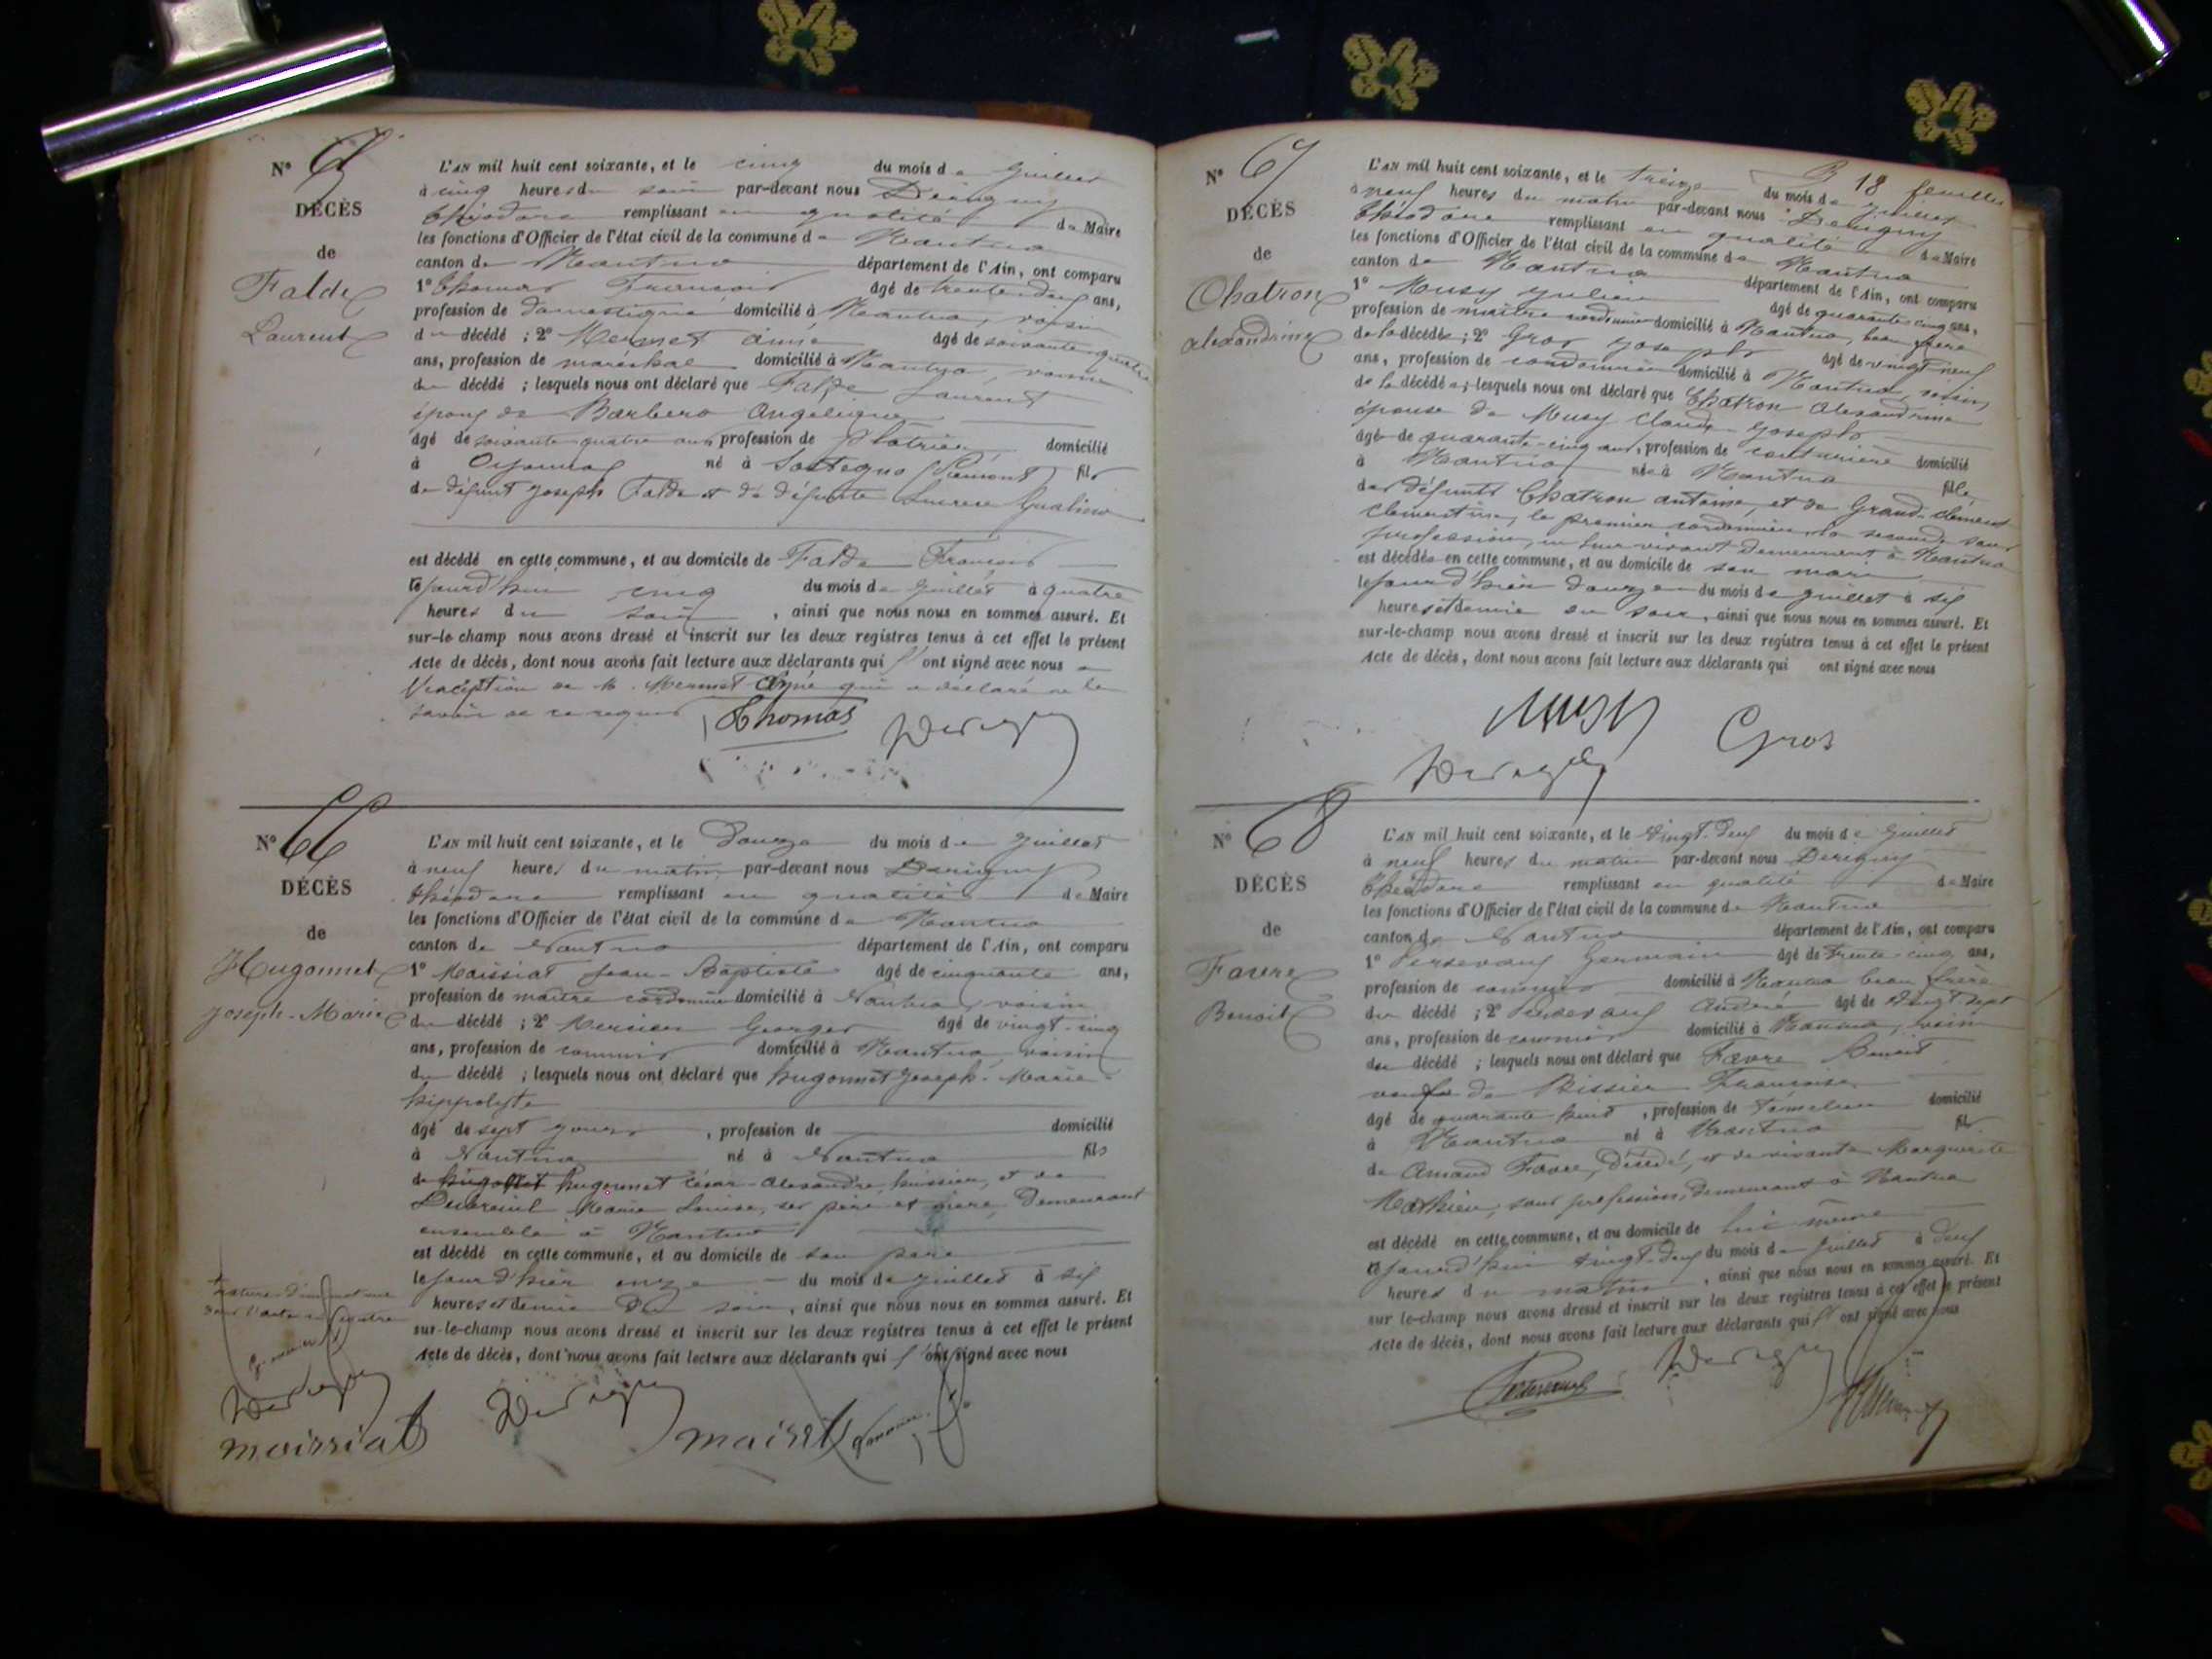 N°
DÉCÈS
de
Falde
Laurent
L'AN mil huit cent soixante, et le cinq du mois de Juillet
à cinq heures du soir par-devant nous Derigny
Théodore remplissant en qualité de Maire
les fonctions d'Officier de l'état civil de la commune de Nantua
canton de Nantua département de l'Ain, ont comparu
1° Thomas François âgé de trente deux ans,
profession de domestique domicilié à Nantua, voisin
du décédé ; 2° Mermet aimé âgé de soixante quatre
ans, profession de maréchal domicilié à Nantua, voisin
du décédé ; lesquels nous ont déclaré que Falde Laurent
époux de Barbero Angélique
âgé de soixante quatre ans profession de platrier domicilié
à Oyonnax né à Sostegno (Piémont) fils
de défunt Joseph Falde et de défunte
est décédé en cette commune, et au domicile de Falde François
le jourd'hui cinq du mois de Juillet à quatre
heures du soir, ainsi que nous nous en sommes assuré. Et
sur-le-champ nous avons dressé et inscrit sur les deux registres tenus à cet effet le présent
Acte de décès, dont nous avons fait lecture aux déclarants qui ont signé avec nous à
l'exception de M. Mermet Aimé qui a déclaré ne le
savoir de ce requis Thomas Derigny
N° 66
DÉCÈS
de
Hugonnet
Joseph-Marie
L'AN mil huit cent soixante, et le Douze du mois de Juillet
à neuf heures du matin, par-devant nous Derigny
théodore remplissant en qualité de Maire
les fonctions d'Officier de l'état civil de la commune de Nantua
canton de Nantua département de l'Ain, ont comparu
1° Maissiat Jean-Baptiste âgé de cinquante ans,
profession de maître cordonnier domicilié à Nantua, voisin
du décédé ; 2° Mercier Georges âgé de vingt-cinq
ans, profession de commis domicilié à Nantua, voisin
du décédé ; lesquels nous ont déclaré que hugonnet Joseph-Marie-
hippolyte
âgé de sept jours, profession de domicilié
à Nantua né à Nantua fils
de hugonnet César-Alexandre, huissier, et de
Marie Louise, ses père et mère, demeurant
ensemble à Nantua
est décédé en cette commune, et au domicile de son père
le jour d'hier onze du mois de juillet à six
heures et demie du soir, ainsi que nous nous en sommes assuré. Et
sur-le-champ nous avons dressé et inscrit sur les deux registres tenus à cet effet le présent
Acte de décès, dont nous avons fait lecture aux déclarants qui ont signé avec nous
Derigny
maissiat
Derigny
N° 67
DÉCÈS
de
Chatron
alexandrine
18 feuillet
L'AN mil huit cent soixante, et le treize du mois de juillet
à neuf heures du matin par-devant nous Derigny
Théodore remplissant en qualité de Maire
les fonctions d'Officier de l'état civil de la commune de Nantua
canton de Nantua département de l'Ain, ont comparu
1° Musy Julien âgé de quarante cinq ans,
profession de maître cordonnier domicilié à Nantua, beau frère
de la décédée ; 2° Gros Joseph âgé de vingt neuf
ans, profession de cordonnier domicilié à Nantua, voisin
de la décédée ; lesquels nous ont déclaré que Chatron Alexandrine
épouse de Musy Claude-Joseph
âgée de quarante-cinq ans, profession de couturière domicilié
à Nantua née à Nantua fille
des défunts Chatron antoine, et de Grand-Clément
Clémentine, le premier cordonnier, la seconde sans
profession, en leur vivant demeurant à Nantua
est décédée en cette commune, et au domicile de son mari
le jour d'hier douze du mois de juillet à six
heures et demie du soir, ainsi que nous nous en sommes assuré. Et
sur-le-champ nous avons dressé et inscrit sur les deux registres tenus à cet effet le présent
Acte de décès, dont nous avons fait lecture aux déclarants qui ont signé avec nous
Musy Gros
Derigny
N° 68
DÉCÈS
de
Favre
Benoit
L'AN mil huit cent soixante, et le Vingt-deux du mois de Juillet
à neuf heures du matin par-devant nous Derigny
Théodore remplissant en qualité de Maire
les fonctions d'Officier de l'état civil de la commune de Nantua
canton de Nantua département de l'Ain, ont comparu
1° Germain âgé de trente-cinq ans,
profession de domicilié à Nantua beau frère
du décédé ; 2° André âgé de vingt sept
ans, profession de domicilié à Nantua, voisin
du décédé ; lesquels nous ont déclaré que Favre Benoit
veuf de Françoise
âgé de quarante huit, profession de domicilié
à Nantua né à Nantua fils
de Amand Favre, décédé, et de vivante Marguerite
Mathieu, sans profession, demeurant à Nantua
est décédé en cette commune, et au domicile de lui-même
le jourd'hui vingt-deux du mois de Juillet à deux
heures du matin, ainsi que nous nous en sommes assuré. Et
sur-le-champ nous avons dressé et inscrit sur les deux registres tenus à cet effet le présent
Acte de décès, dont nous avons fait lecture aux déclarants qui ont signé avec nous
Derigny